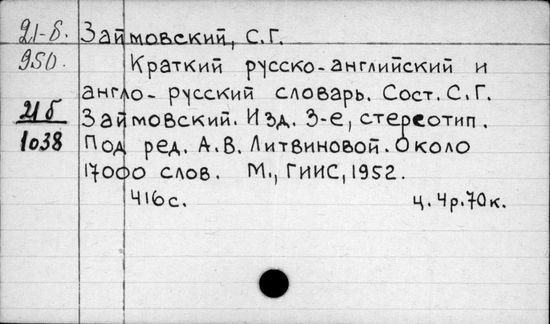 21-б. Займовский, С.Г.
950. Краткий русско-английский и
англо-русский словарь. Сост. С.Г.
21б Займовский. Изд. 3-е, стереотип.
1038 Под ред. А.В. Литвиновой. Около
17000 слов. М., ГИИС, 1952.
416с. ц. 4р.70к.